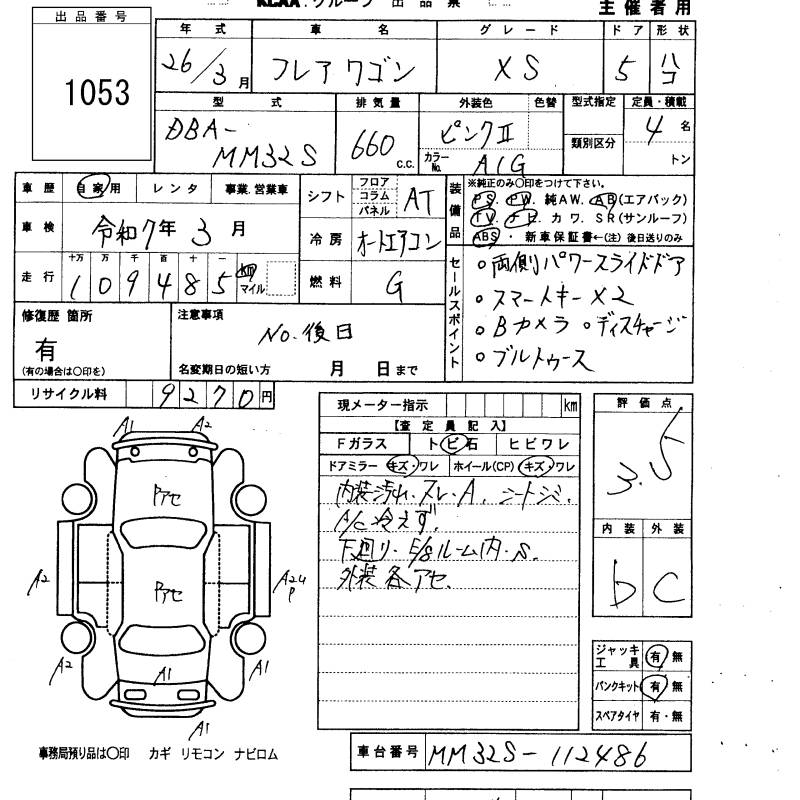 KCAA.グループ 出品票
主催者用
出品番号
1053
年式 車名 グレード ドア 形状
26/3月 フレアワゴン XS 5 ハコ
型式 排気量 外装色 色替 型式指定 定員・積載
DBA-MM32S 660 c.c. ピンクII 類別区分 4名
カラーNo. A1G トン
車歴 自家用 レンタ 事業.営業車
シフト フロア コラム パネル AT
車検 令和7年3月
冷房 オートエアコン
走行 十万 万 千 百 十 一
109485 km マイル
燃料 G
装備品 ※純正のみ〇印をつけて下さい。
PS. PW. 純AW. AB(エアバック)
TV. ナビ. カワ. SR(サンルーフ)
ABS・新車保証書←(注)後日送りのみ
セールスポイント
○両側パワースライドドア
○スマートキーX2
○Bカメラ ○ディスチャージ
○ブルトゥース
修復歴 箇所
有
(有の場合は〇印を)
注意事項
No.後日
名変期日の短い方 月 日まで
リサイクル料 9270円
現メーター指示 km
【査定員記入】
Fガラス トビ石 ヒビワレ
ドアミラー キズ・ワレ ホイール(CP) キズ・ワレ
内装汚れ・スレ・A. シートシミ.
A/C冷えず.
下廻り・E/gルーム内・S.
外装各アセ.
評価点
3.5
内装 外装
b C
ジャッキ工具 有・無
パンクキット 有・無
スペアタイヤ 有・無
A1 A2
Pアセ
A2 Pアセ A2U P
A2 A1 A1
A1
事務局預り品は〇印 カギ リモコン ナビロム
車台番号 MM32S-112486